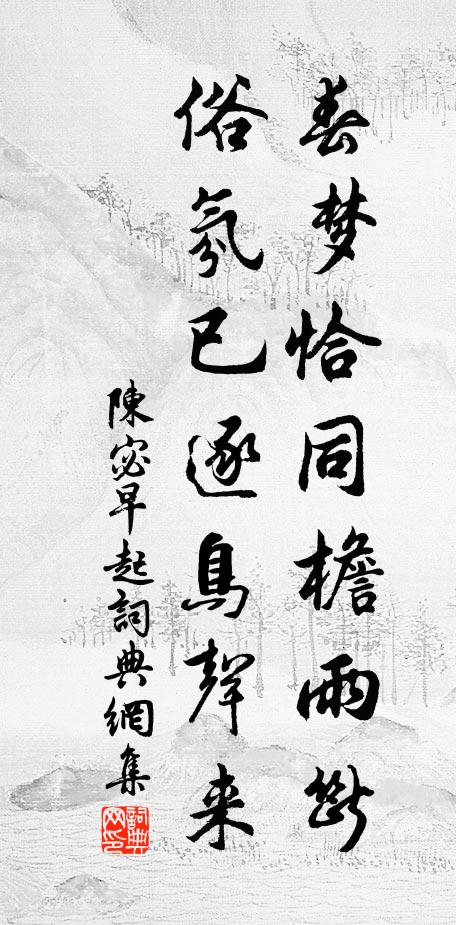 春梦恰同檐雨断
俗氛已逐鳥聲来
陳宓早起詞典網集
詞典网印